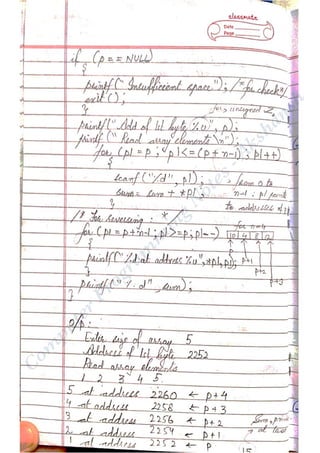 classmate
Date
Page
if (p == NULL)
{
printf(" Insufficient space"); /* for check */
exit();
}
for unsigned
printf("Add of 1st byte %u", p);
printf(" Read array elements \n");
for (p1 = p ; p1 <= (p+n-1) ; p1++)
{
scanf("%d", p1);
from 0 to
sum = sum + *p1;
n-1 : p1 point
to addresses of
/* For reversing : */
for n=4
for (p1 = p+n-1 ; p1 >= p ; p1--)
10 4 8 12
{
p p+1
printf("%d at address %u", *p1, p1);
p+2
}
p+3
printf("%d", sum);
}
O/p:
Enter size of array 5
Address of 1st byte 2252
Read array elements
1 2 3 4 5.
5 at address 2260 ← p+4
4 at address 2258 ← p+3
3 at address 2256 ← p+2
2 at address 2254 ← p+1
at last
1 at address 2252 ← p
15